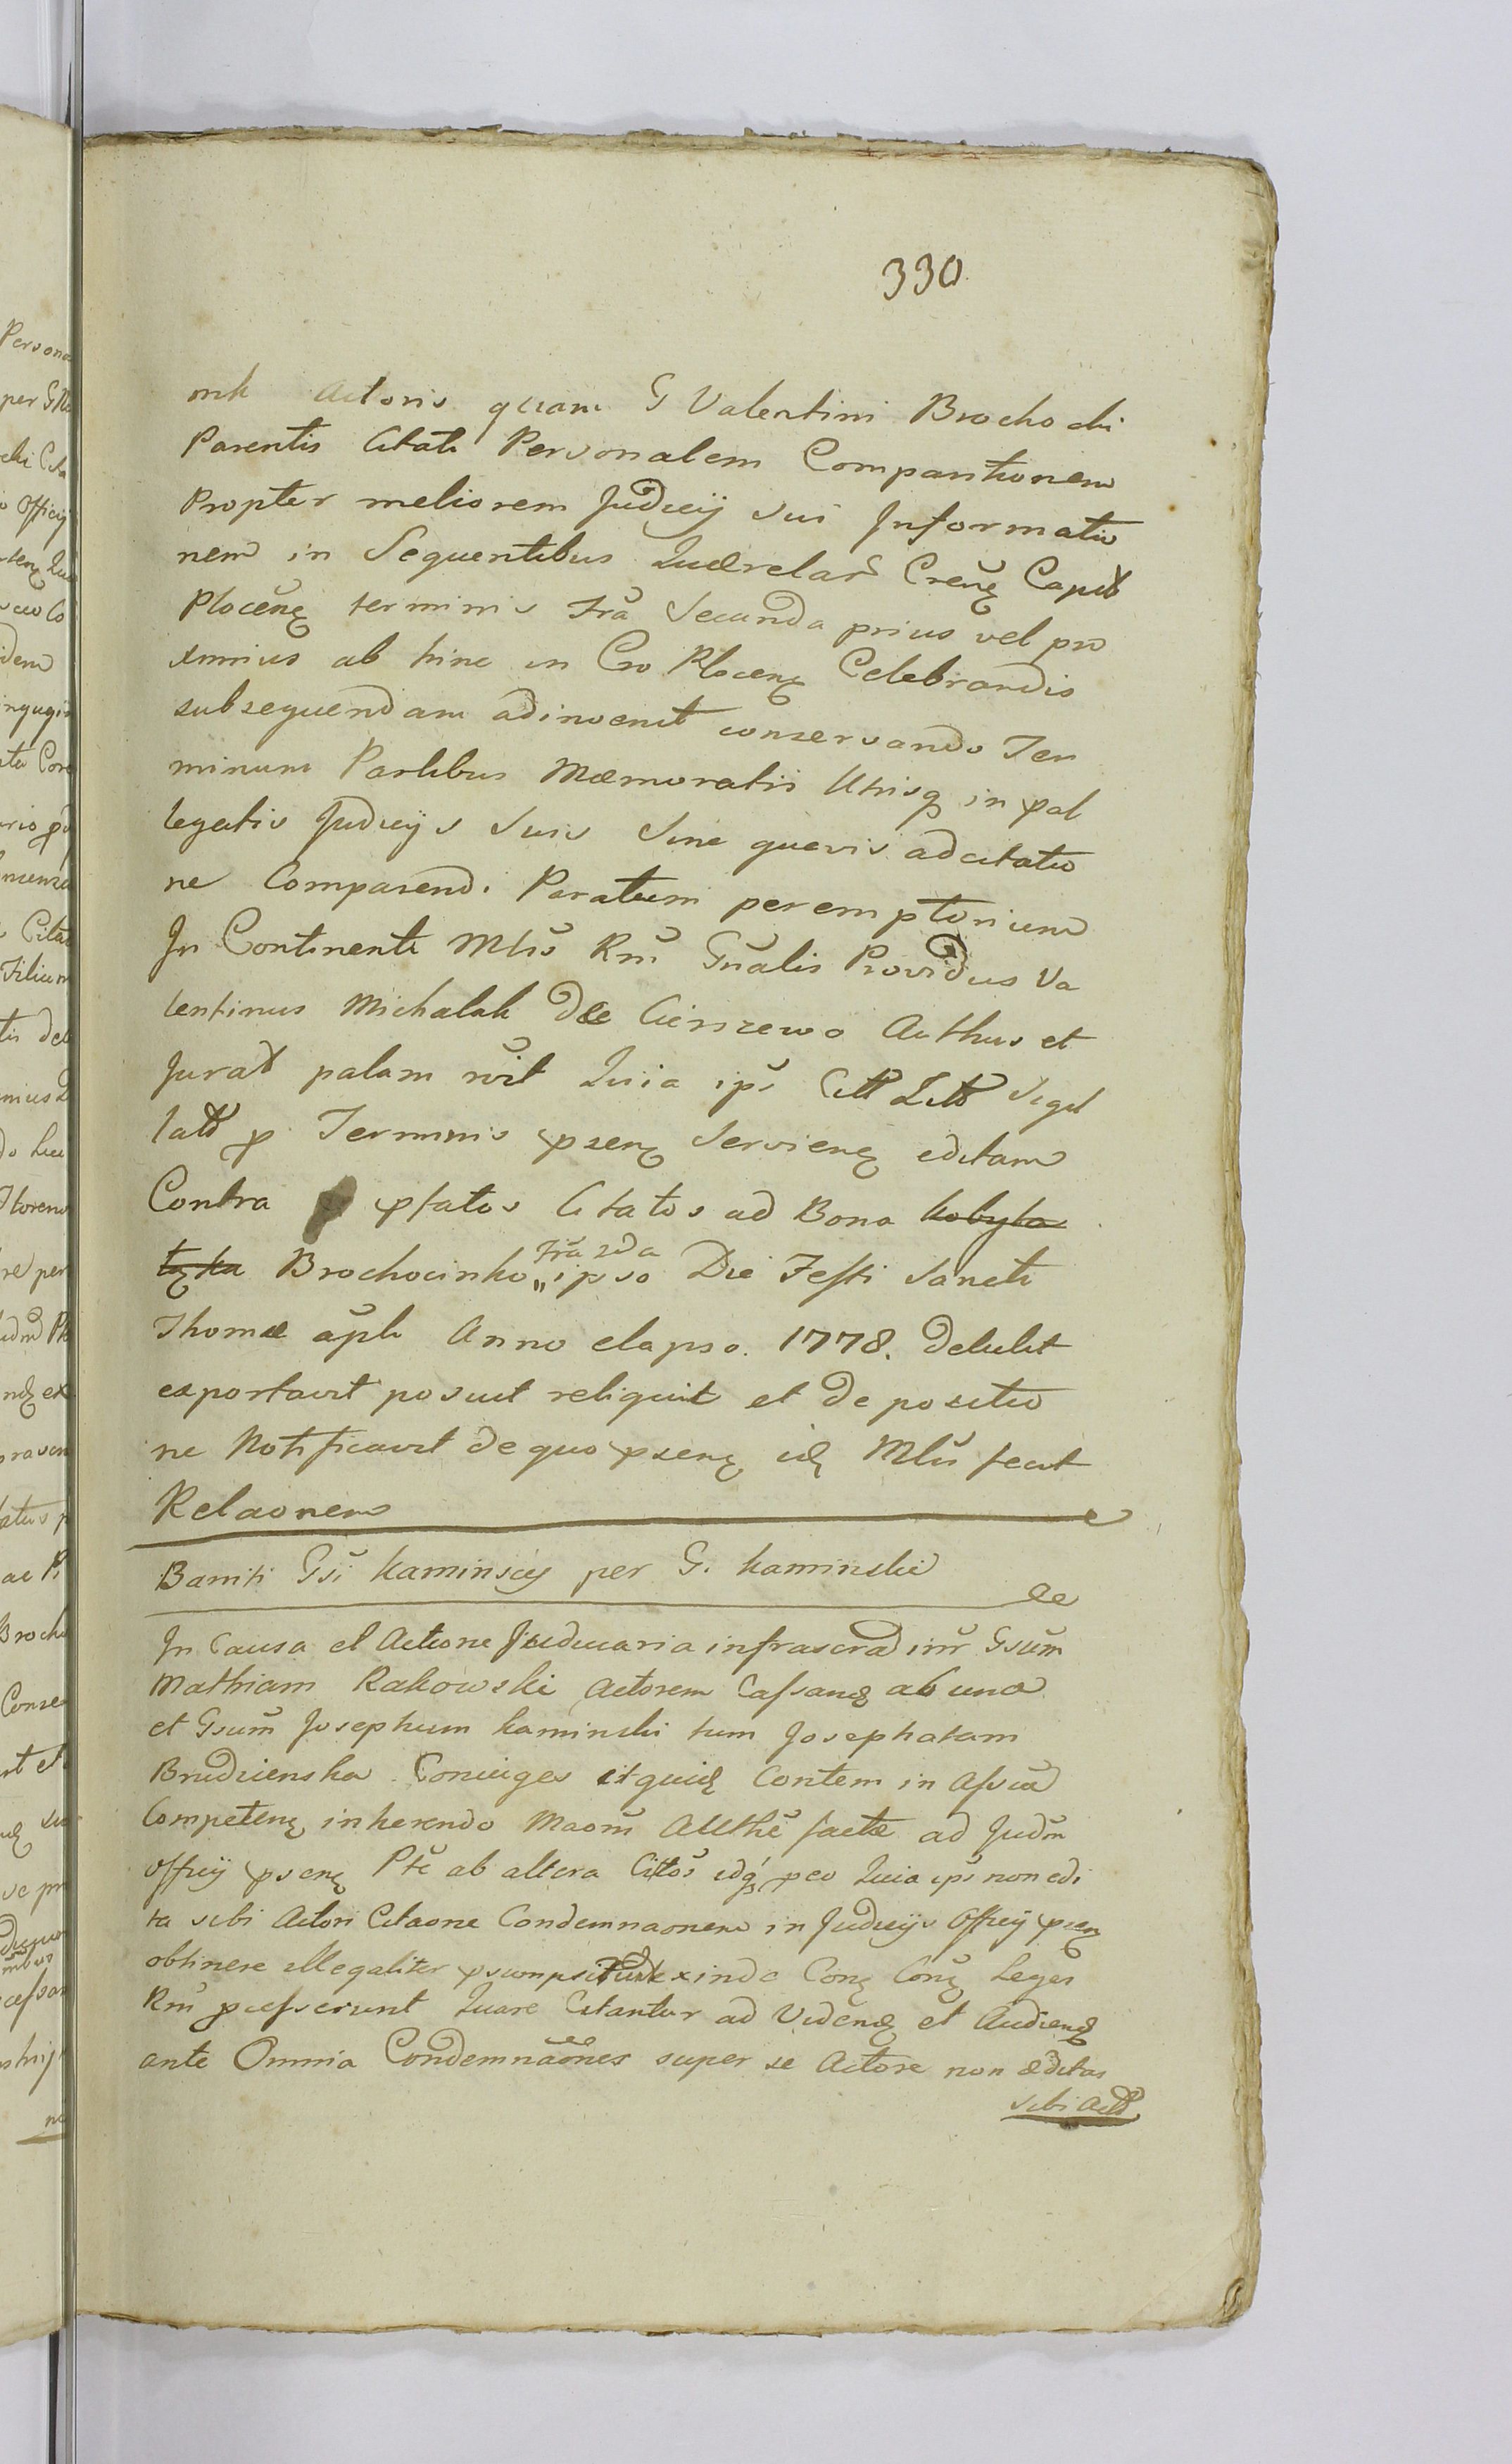 330
mk Actoris quam G Valentini Brochocki
Parentis Citati Personalem Comparitionem
Propter meliorem Judicij sui Informatio
nem in Sequentibus Quærelar Crenę Capit
Plocenę terminis Fra Secunda prius vel pro
ximius ab hinc in Cro Plocenę Celebrandis
subsequendam adinvenit conservando Ter
minum Partibus Mæmoratis Utrisq in pal
legatis Judicijs Suis Sine quavis adcitatio
ne Comparendi Paratum peremptorium
In Continenti Mlis Rni Gnalis Providus Va
lentinus Michalak De Cierszewo Authus et
Jurat palam rvit Quia ips Citt Litt Sigil
latt p Terminis psenę Servienę editam
Contra pfatos Citatos ad Bona Kobyla
Brochocinko „ Fra 2da ipso Die Festi Sancti
Thomæ apli Anno elapso. 1778. Detulit
exportavit posuit reliquit et de positio
ne Notificavit de quo psenę idę Mlis fecit
Relaonem
Banniti Gsi Kaminscy per G. Kaminski
In Causa et Actione Judiciaria infrascra inr Gsum
Mathiam Rakowski Actorem Cassanę ab una
et Gsum Josephum Kaminski tum Josephatam
Brudzienska Coniuges itquidę Contem in Assia
Competenę inherendo Maom Authe factæ ad Judm
Officij psenę Pte ab altera Cittos idq peo Quia ipsi non edi
ta sibi Actori Citaone Condemnaonem in Judicijs Officij psenę
obtinere illegaliter psumpserunt exinde Conę Conę Leges
Rni pcesserunt Quare Citantur ad Videnę et Audienę
ante Omnia Condemnãones super se Actore non æditas
sibi Actt